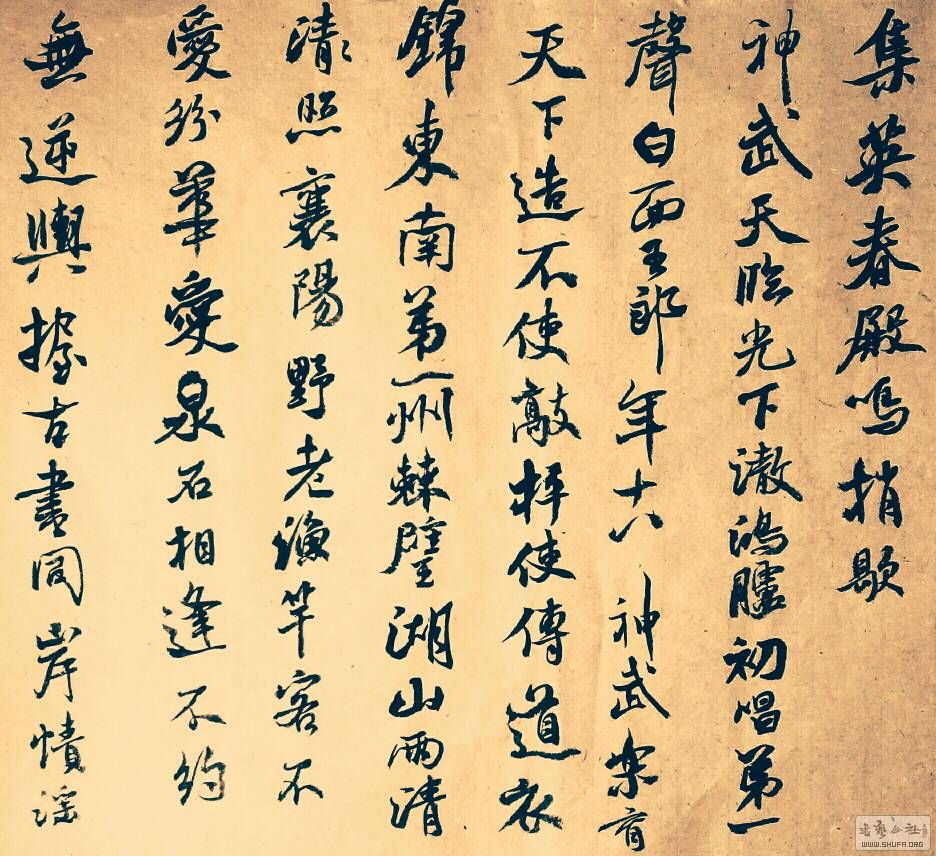 集英春殿鳴捎歇
神武天臨光下澈鴻臚初唱第一
聲白面王郎年十八神武樂育
天下造不使敲枰使傳道衣
錦東南第一州棘璧湖山兩清
清照襄陽野老漁竿客不
愛紛華愛泉石相逢不約
無逆輿握古書同岸幘淫
書藝公社
WWW.SHUFA.ORG